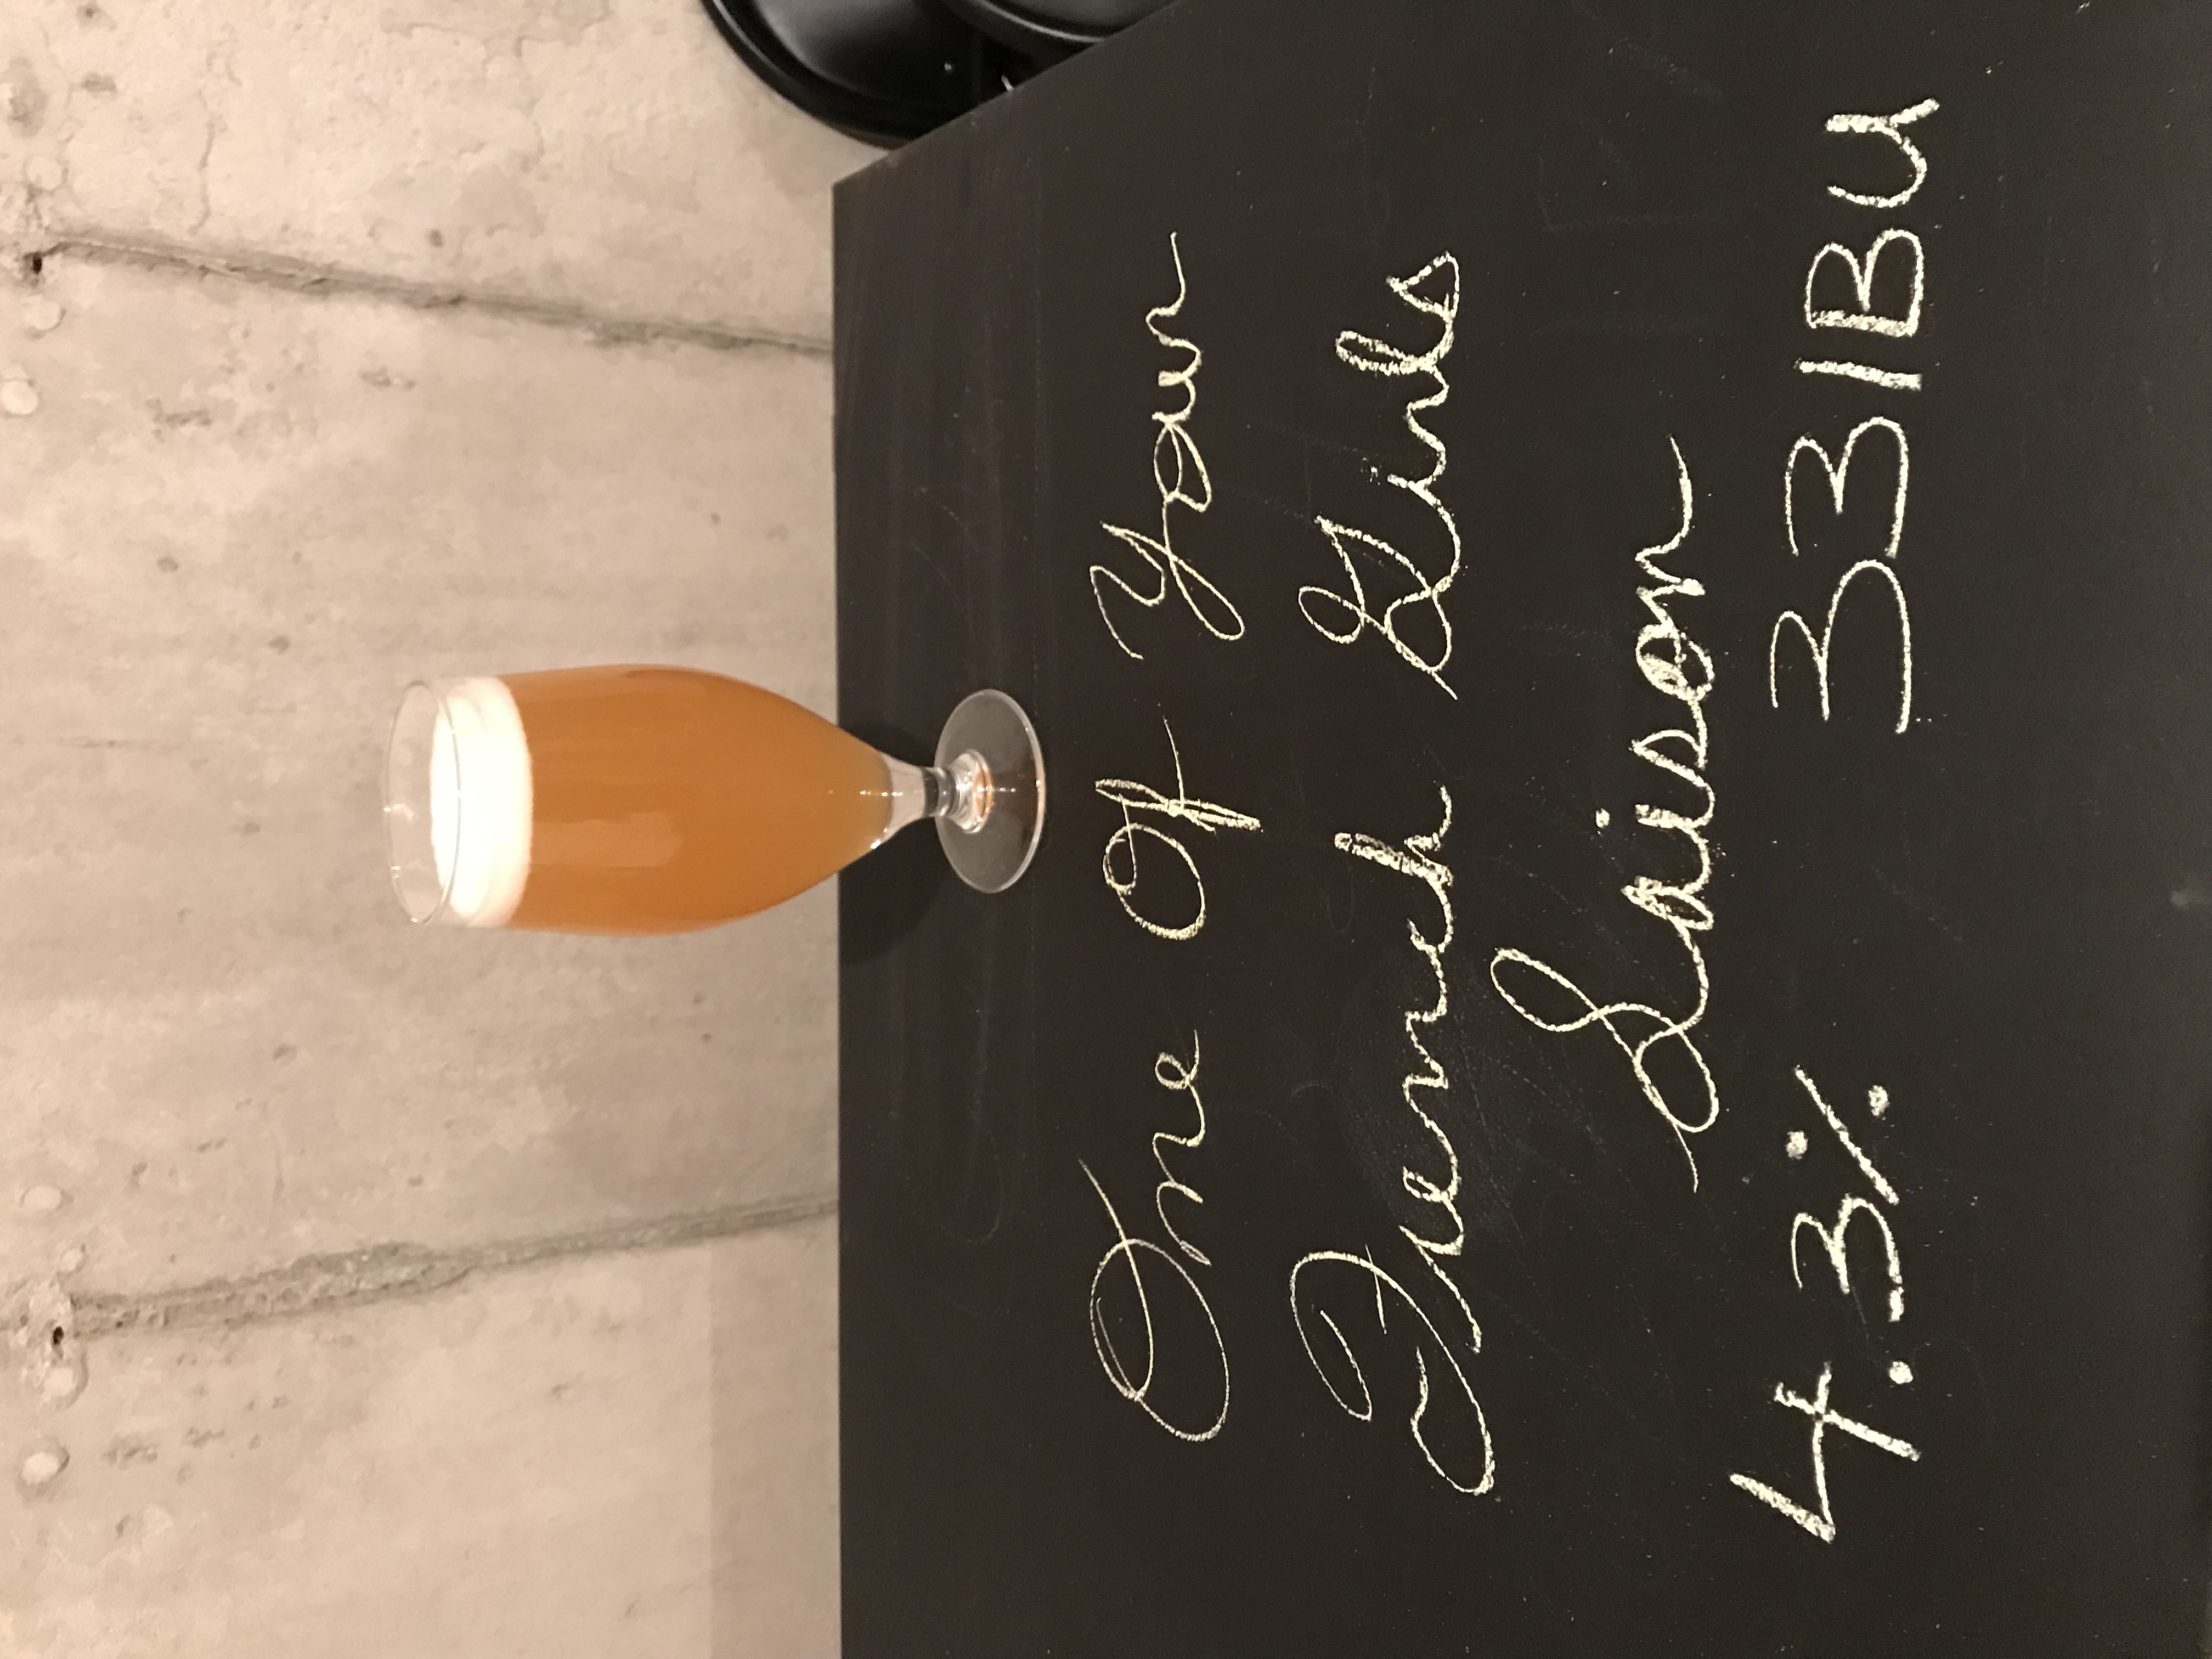 One Of Your
French Girls
Saison
4.3% 33 IBU